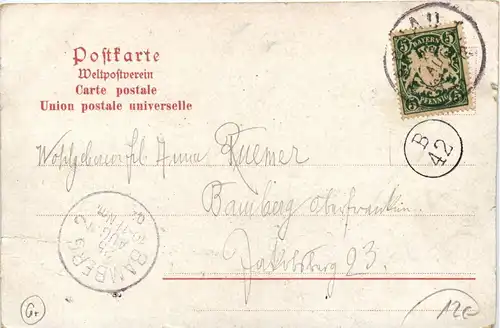 Postkarte
Weltpostverein
Carte postale
Union postale universelle
BAYERN
5 5
PFENNIG
B
42
Wohlgeboren Frl. Anna Kuemer
Bamberg Oberfranken
Jakobsberg 23.
BAMBERG
AUG
12€